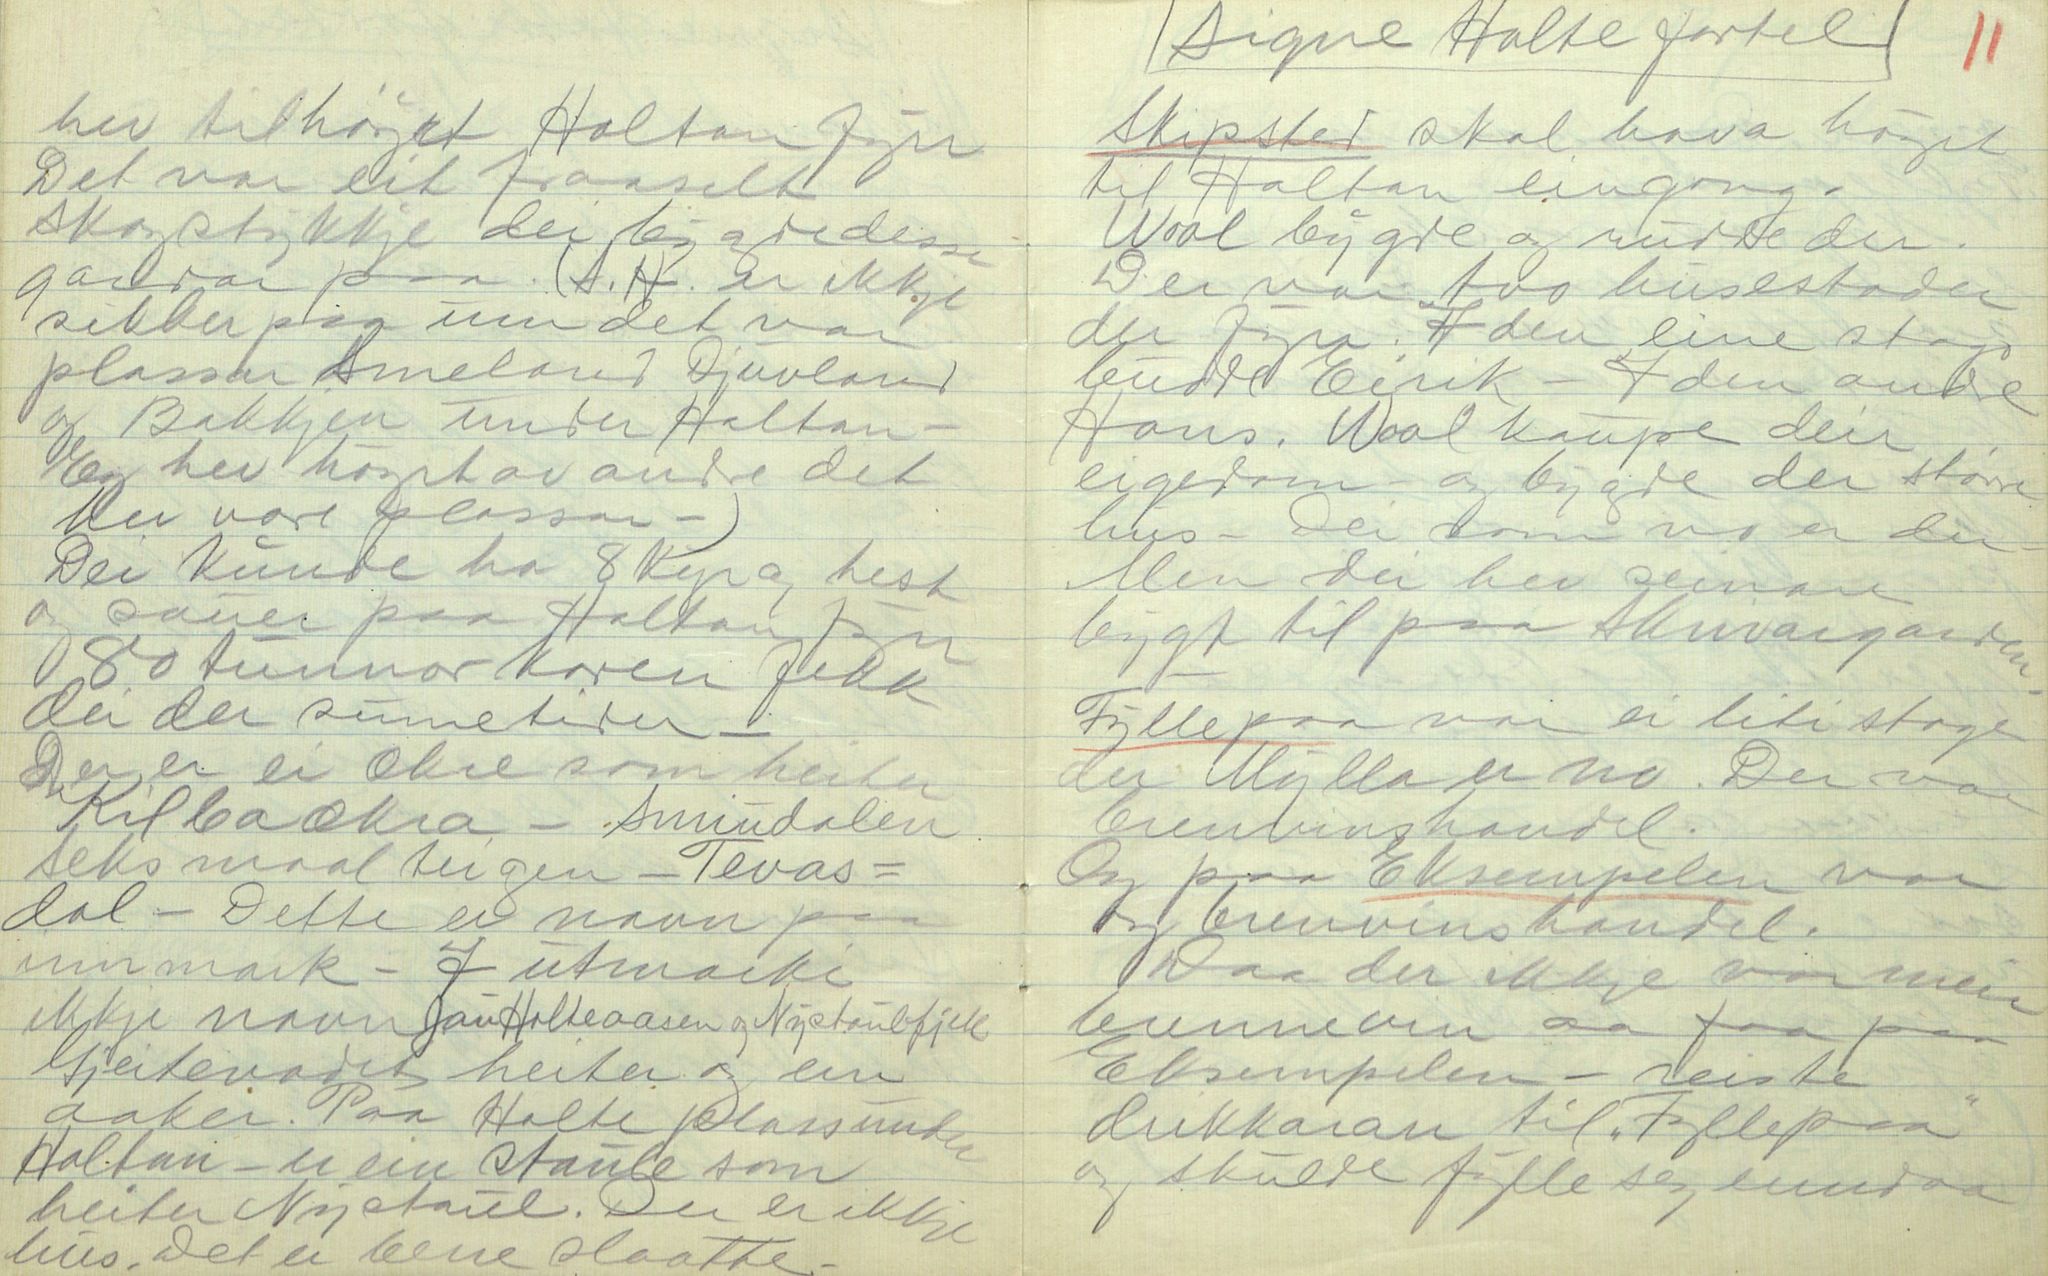 hev tilhöyrt Holtan fyrr
Det var eit fraaselt
skogstykkje dei bygde desse
gardar paa. (S.H. er ikkje
sikker paa um det var
plassar Smeland Djuvland
og Bakkjen under Holtan -
Eg hev höyrt av andre det
hev vore plassar -)
Dei kunde ha 8 kyr og hest
og sauer paa Holtan fyrr
80 tunnor korn fekk
dei der sumetider -
Der er ei ekre som heiter
Kilbaekra - Smiudalen
seks maal teigen - Tevas=
dal - Dette er navn paa
innmark - I utmarki
ikkje navn Jau Holteaasen og Nystaulfjell
Gjeitevadet heiter og ein
aaker. Paa Holte plass under
Holtan - er ein staule som
heiter Nystaul. Der er ikkje
hus. Det er bere slaatte -
Signe Holte fortel
11
Skipsted skal hava höyrt
til Holtan eingong.
Waal bygde og rudde der.
Der var tvo husestader
der fyrr. I den eine stoga
budde Eirik - I den andre
Hans. Waal kaupe deira
eigedom - og bygde der större
hus - Dei som no er der -
Men dei hev seinare
bygt til paa Skrivargarden -
Fyllepaa var ei liti stoge
der Mylla er no. Der var
brenvinshandel.
Og paa Eksempelen var
og brenvinshandel.
Daa der ikkje var meir
brennevin aa faa paa
Eksempelen - reiste
drikkaran til "Fyllepaa"
og skulde fylle seg enndaa